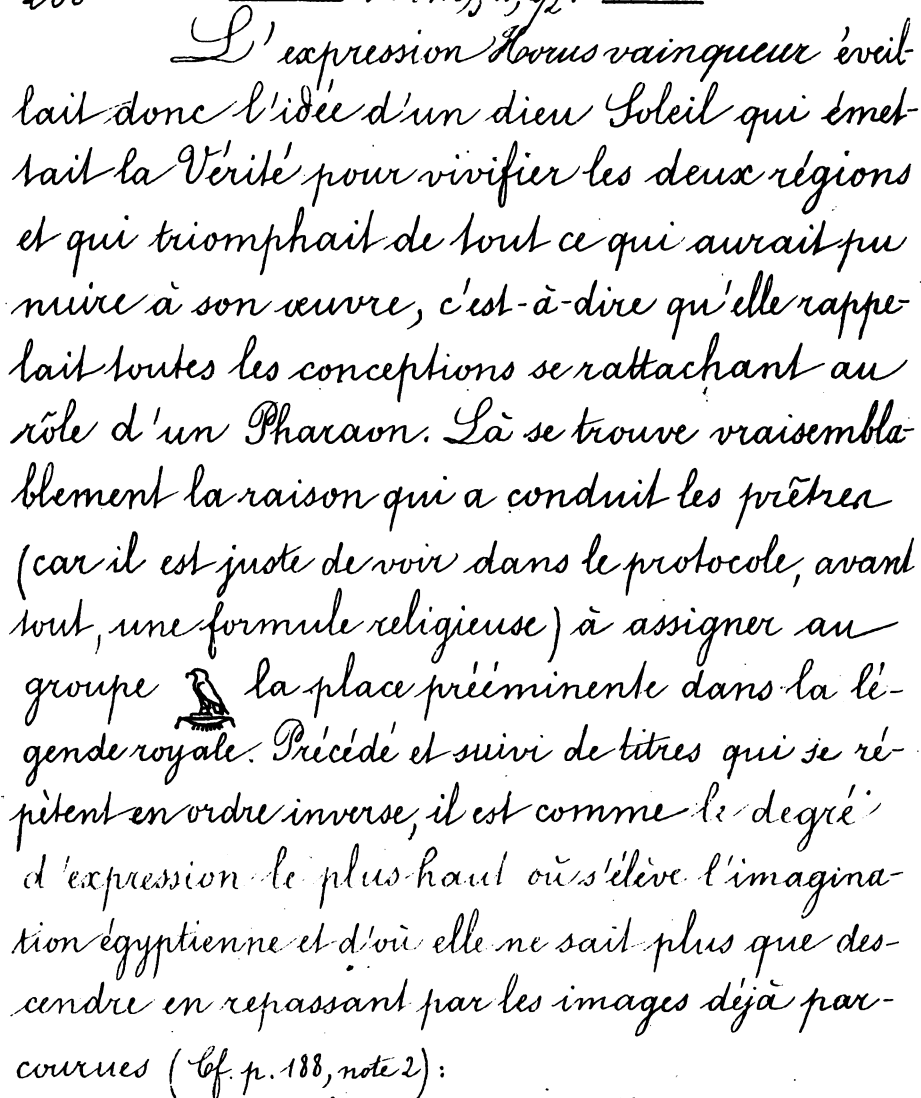 L'expression Horus vainqueur éveil-
lait donc l'idée d'un dieu Soleil qui émet-
tait la Vérité pour vivifier les deux régions
et qui triomphait de tout ce qui aurait pu
nuire à son œuvre, c'est-à-dire qu'elle rappe-
lait toutes les conceptions se rattachant au
rôle d'un Pharaon. Là se trouve vraisembla-
blement la raison qui a conduit les prêtres
(car il est juste de voir dans le protocole, avant
tout, une formule religieuse) à assigner au
groupe la place prééminente dans la lé-
gende royale. Précédé et suivi de titres qui se ré-
pètent en ordre inverse, il est comme le degré
d'expression le plus haut où s'élève l'imagina-
tion égyptienne et d'où elle ne sait plus que des-
cendre en repassant par les images déjà par-
courues (Cf. p. 188, note 2) :